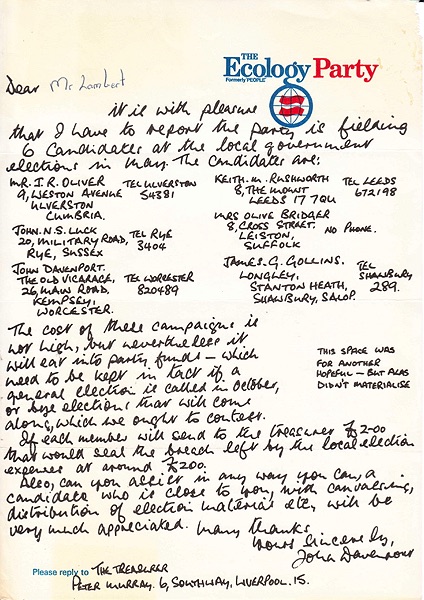 THE
Ecology Party
Formerly PEOPLE
Dear Mr Lambert
it is with pleasure
that I have to report the party is fielding
6 candidates at the local government
elections in May. The candidates are:
MR. I.R. OLIVER TEL ULVERSTON
9, WESTON AVENUE 54381
ULVERSTON
CUMBRIA.
KEITH. M. RUSHWORTH TEL LEEDS
8, THE MOUNT 672198
LEEDS 17 7QU
JOHN. N.S. LUCK
20, MILITARY ROAD, TEL RYE
RYE, SUSSEX 3404
MRS OLIVE BRIDGER
8, CROSS STREET. NO PHONE.
LEISTON,
SUFFOLK
JOHN DAVENPORT.
THE OLD VICARAGE, TEL WORCESTER
26, MAIN ROAD. 820489
KEMPSEY,
WORCESTER.
JAMES. G. GOLLINS. TEL
LONGLEY, SHAWBURY
STANTON HEATH, 289.
SHAWBURY, SALOP.
The cost of these campaigns is
not high, but nevertheless it
will eat into party funds – which
need to be kept in tact if a
general election is called in October,
or bye elections that will come
along, which we ought to contest.
THIS SPACE WAS
FOR ANOTHER
HOPEFUL – BUT ALAS
DIDN'T MATERIALISE
If each member will send to the treasurer £2-00
that would seal the breach left by the local election
expenses at around £200.
Also, can you assist in any way you can, a
candidate who is close to you, with canvassing,
distribution of election materials etc, will be
very much appreciated. Many thanks
Yours Sincerely,
John Davenport
Please reply to THE TREASURER
PETER MURRAY. 6, SOUTHWAY, LIVERPOOL. 15.